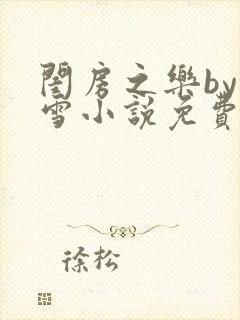 閨房之樂by
雪小説免費
徐松